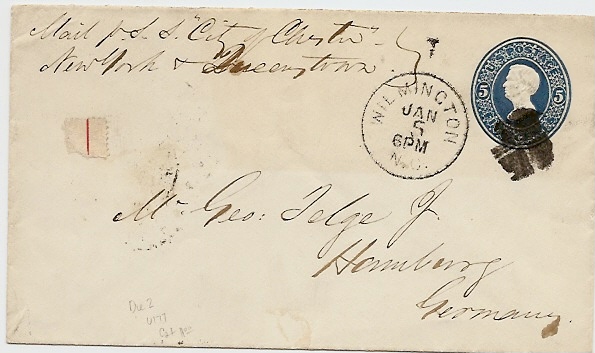 Mail p S. S. "City of Chester"
New York & Queenstown.
U.S. POSTAGE
5 5
WILMINGTON
JAN
5
6PM
N.C.
Mr Geo: Telge Jr
Hamburg
Germany.
Die 2
U171